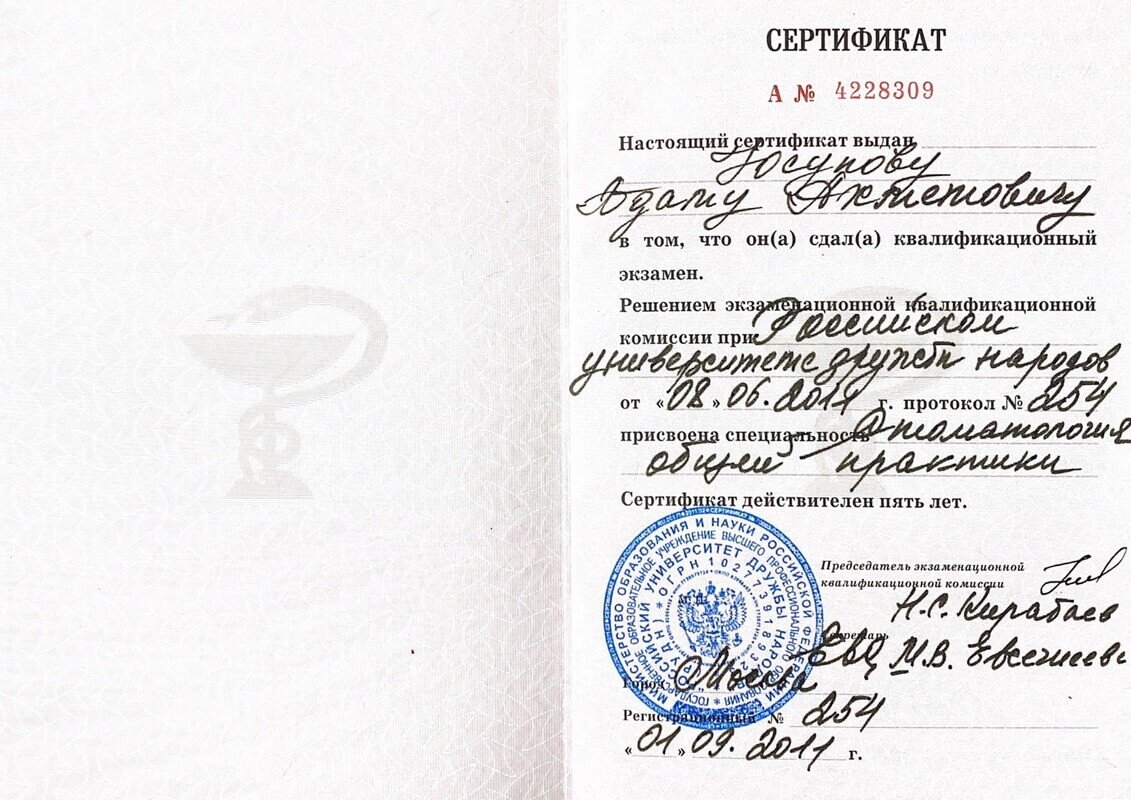 СЕРТИФИКАТ
А № 4228309
Настоящий сертификат выдан
Юсупову
Адаму Ахметовичу
в том, что он(а) сдал(а) квалификационный
экзамен.
Решением экзаменационной квалификационной
комиссии при Российском
университете дружбы народов
от «08» 06. 2011 г. протокол № 254
присвоена специальность Стоматология
общей практики
Сертификат действителен пять лет.
Председатель экзаменационной
квалификационной комиссии
Н.С. Кирабаев
Секретарь
М.В. Евсечиева
Город Москва
Регистрационный № 254
«01» 09. 2011 г.
МИНИСТЕРСТВО ОБРАЗОВАНИЯ И НАУКИ РОССИЙСКОЙ ФЕДЕРАЦИИ
ГОСУДАРСТВЕННОЕ ОБРАЗОВАТЕЛЬНОЕ УЧРЕЖДЕНИЕ ВЫСШЕГО ПРОФЕССИОНАЛЬНОГО ОБРАЗОВАНИЯ
РОССИЙСКИЙ УНИВЕРСИТЕТ ДРУЖБЫ НАРОДОВ